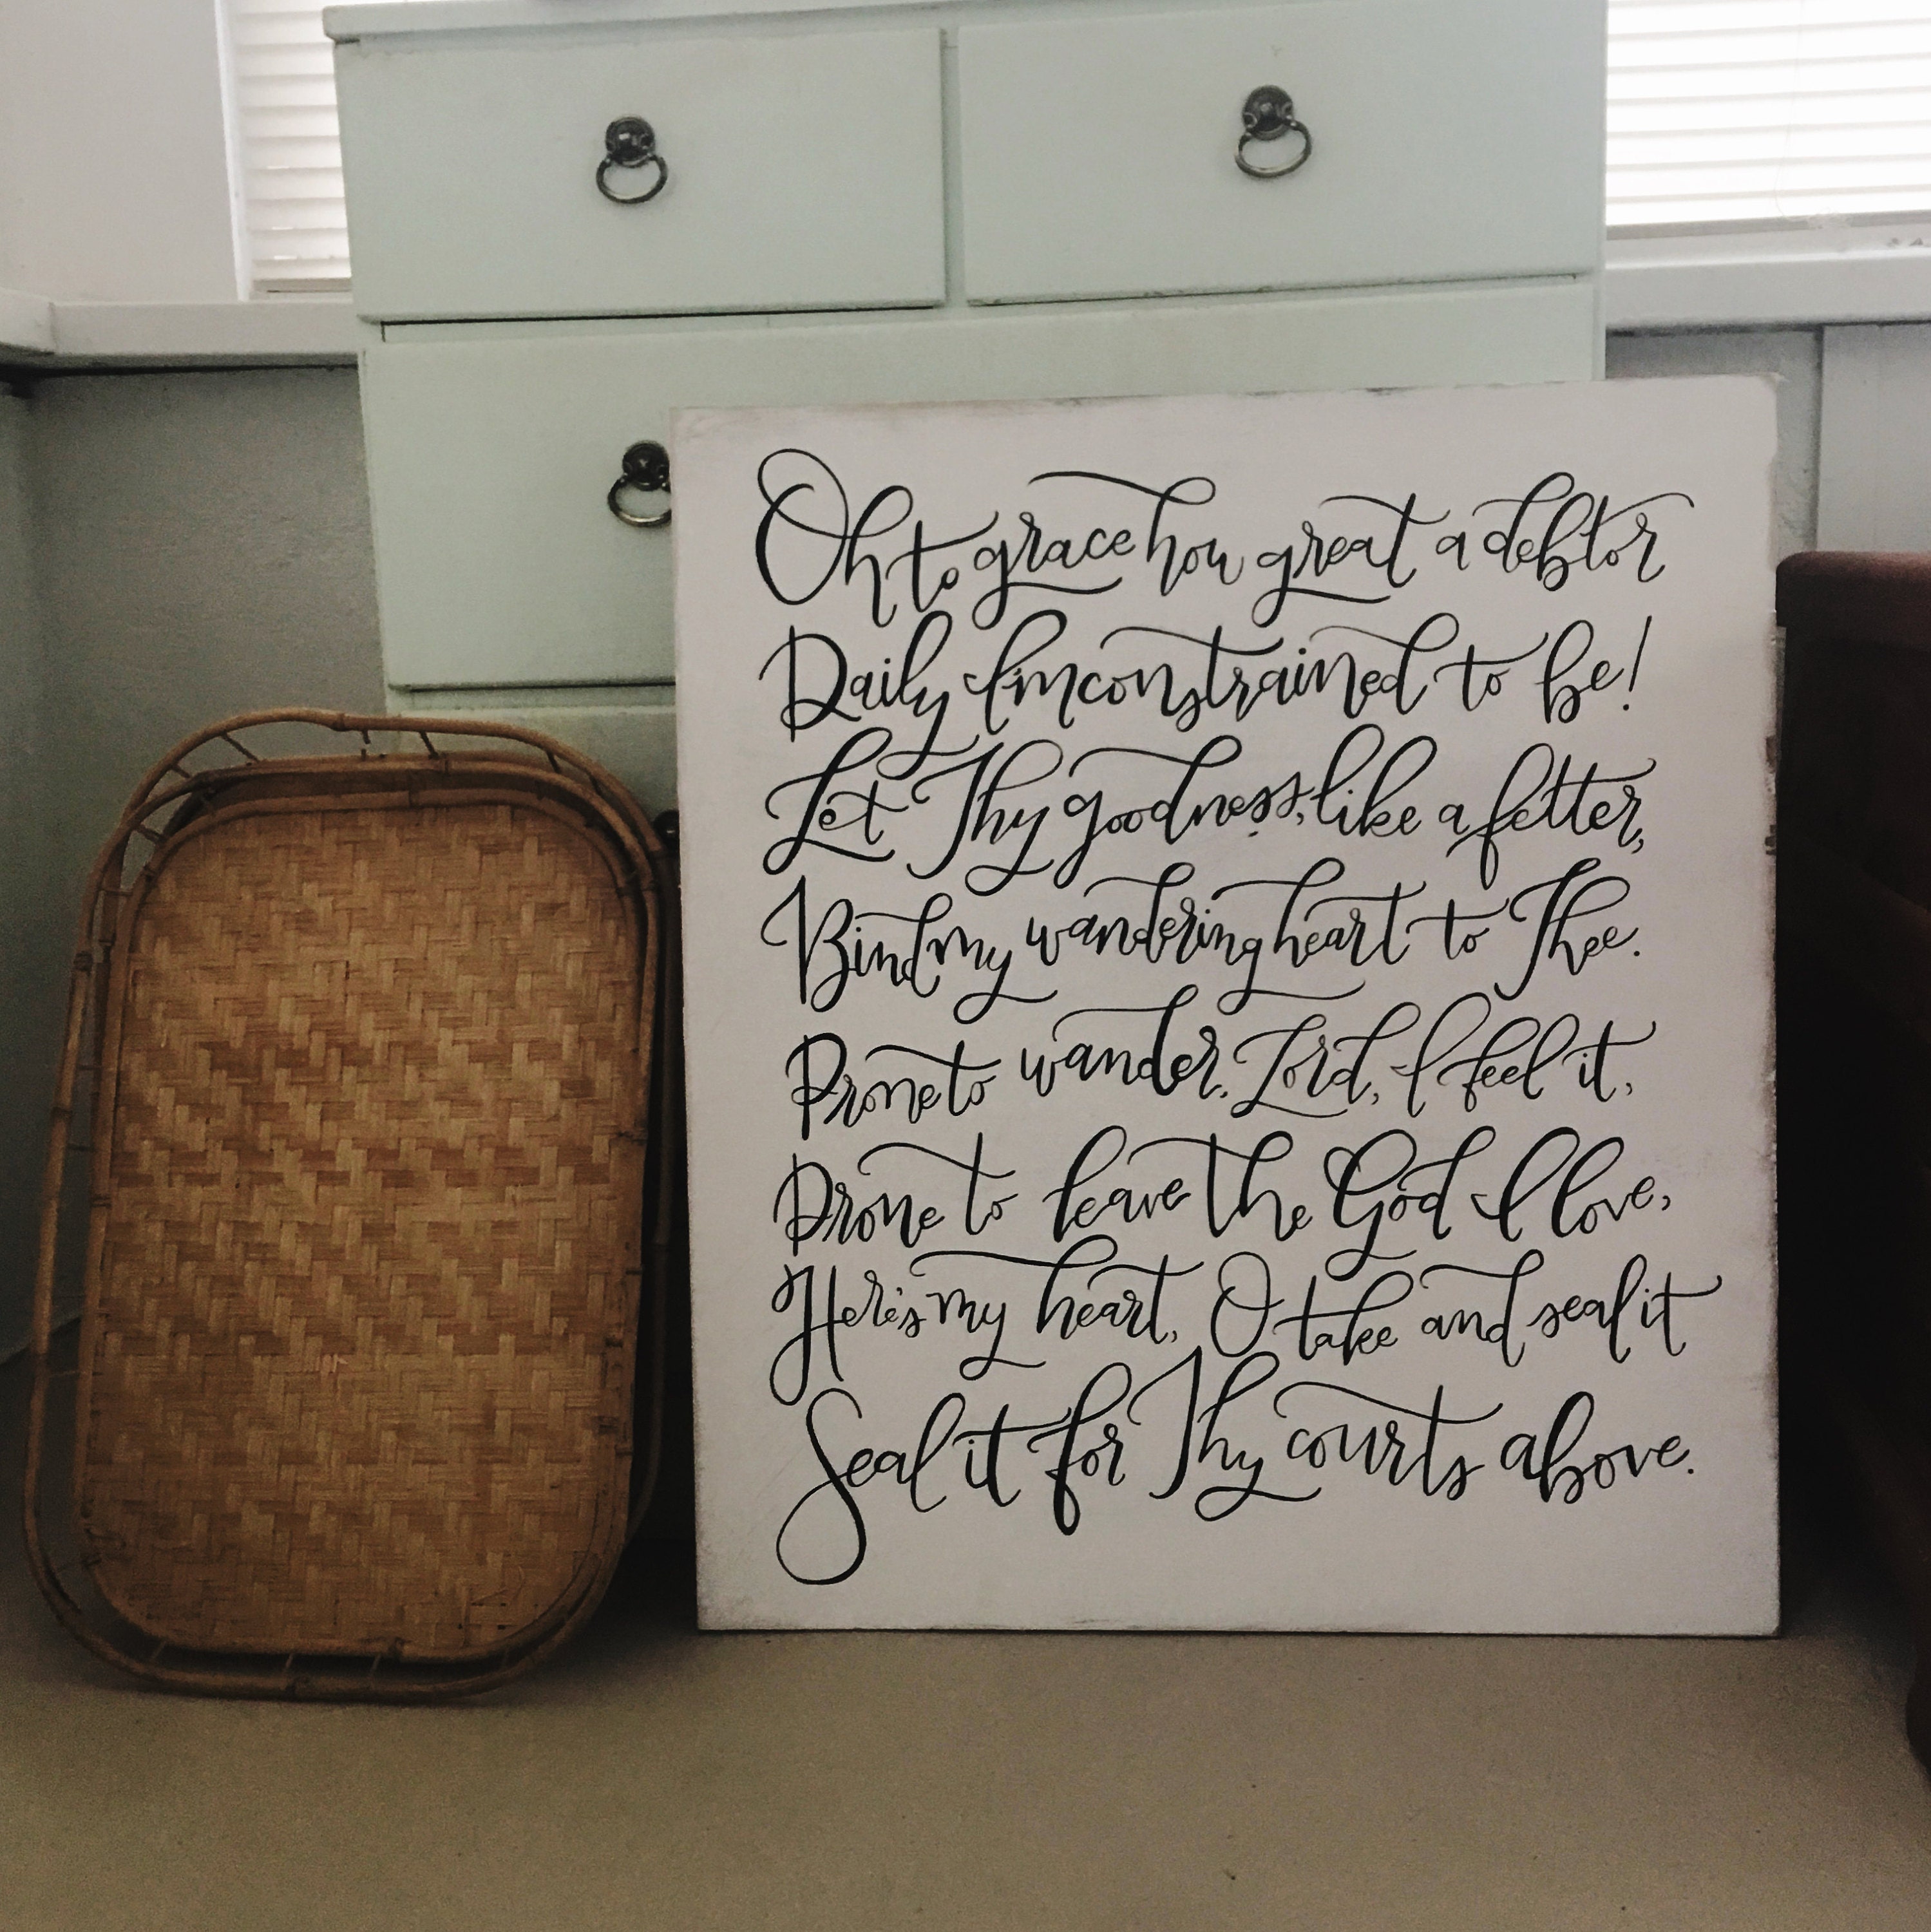 Oh to grace how great a debtor
Daily I'm constrained to be!
Let Thy goodness, like a fetter,
Bind my wandering heart to Thee.
Prone to wander, Lord, I feel it,
Prone to leave the God I love,
Here's my heart, O take and seal it
Seal it for Thy courts above.